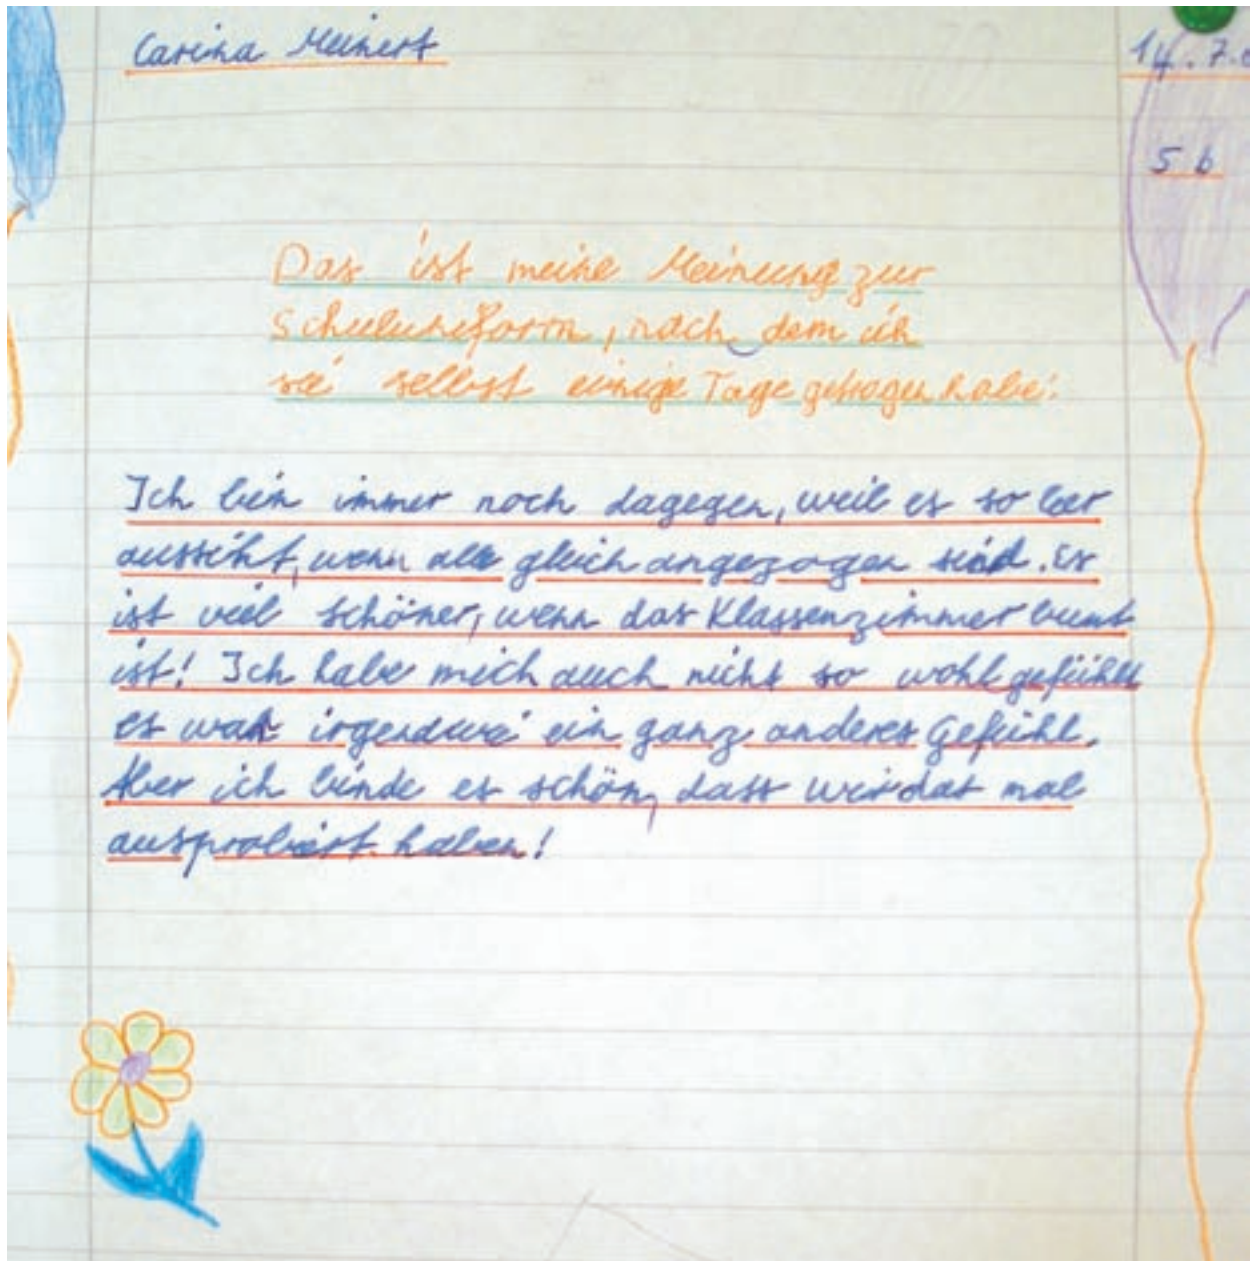 Carina Meinert
14.7.0
5 b
Das ist meine Meinung zur
Schuluniform, nach dem ich
sie selbst einige Tage getragen habe:
Ich bin immer noch dagegen, weil es so leer
aussieht, wenn alle gleich angezogen sind. Es
ist viel schöner, wenn das Klassenzimmer bunt
ist! Ich habe mich auch nicht so wohl gefühlt
es war irgendwie ein ganz anderes Gefühl.
Aber ich finde es schön, dass wir das mal
ausprobiert haben!